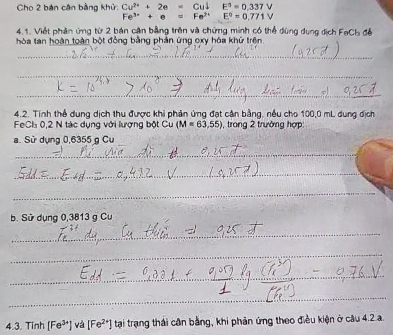 Cho 2 bán cân bằng khử: Cu²⁺ + 2e = Cu↓ E⁰ = 0,337 V
Fe³⁺ + e = Fe²⁺ E⁰ = 0,771 V
4.1. Viết phản ứng từ 2 bán cân bằng và chứng minh có thể dùng dung dịch FeCl₃ để
hòa tan hoàn toàn bột đồng bằng phản ứng oxy hóa khử trên.
(0,25đ)
K = > 10⁸ ⇒ 0,25 đ
4.2. Tính thế dung dịch thu được khi phản ứng đạt cân bằng, nếu cho 100,0 mL dung dịch
FeCl₃ 0,2 N tác dụng với lượng bột Cu (M = 63,55), trong 2 trường hợp:
a. Sử dụng 0,6355 g Cu
⇒ vừa đủ 0,25 đ
Edd = = 0,482 V (0,25đ)
b. Sử dụng 0,3813 g Cu
Fe³⁺ dư, Cu thiếu ⇒ 0,25 đ
Edd = + lg = 0,76 V
4.3. Tính [Fe³⁺] và [Fe²⁺] tại trạng thái cân bằng, khi phản ứng theo điều kiện ở câu 4.2.a.